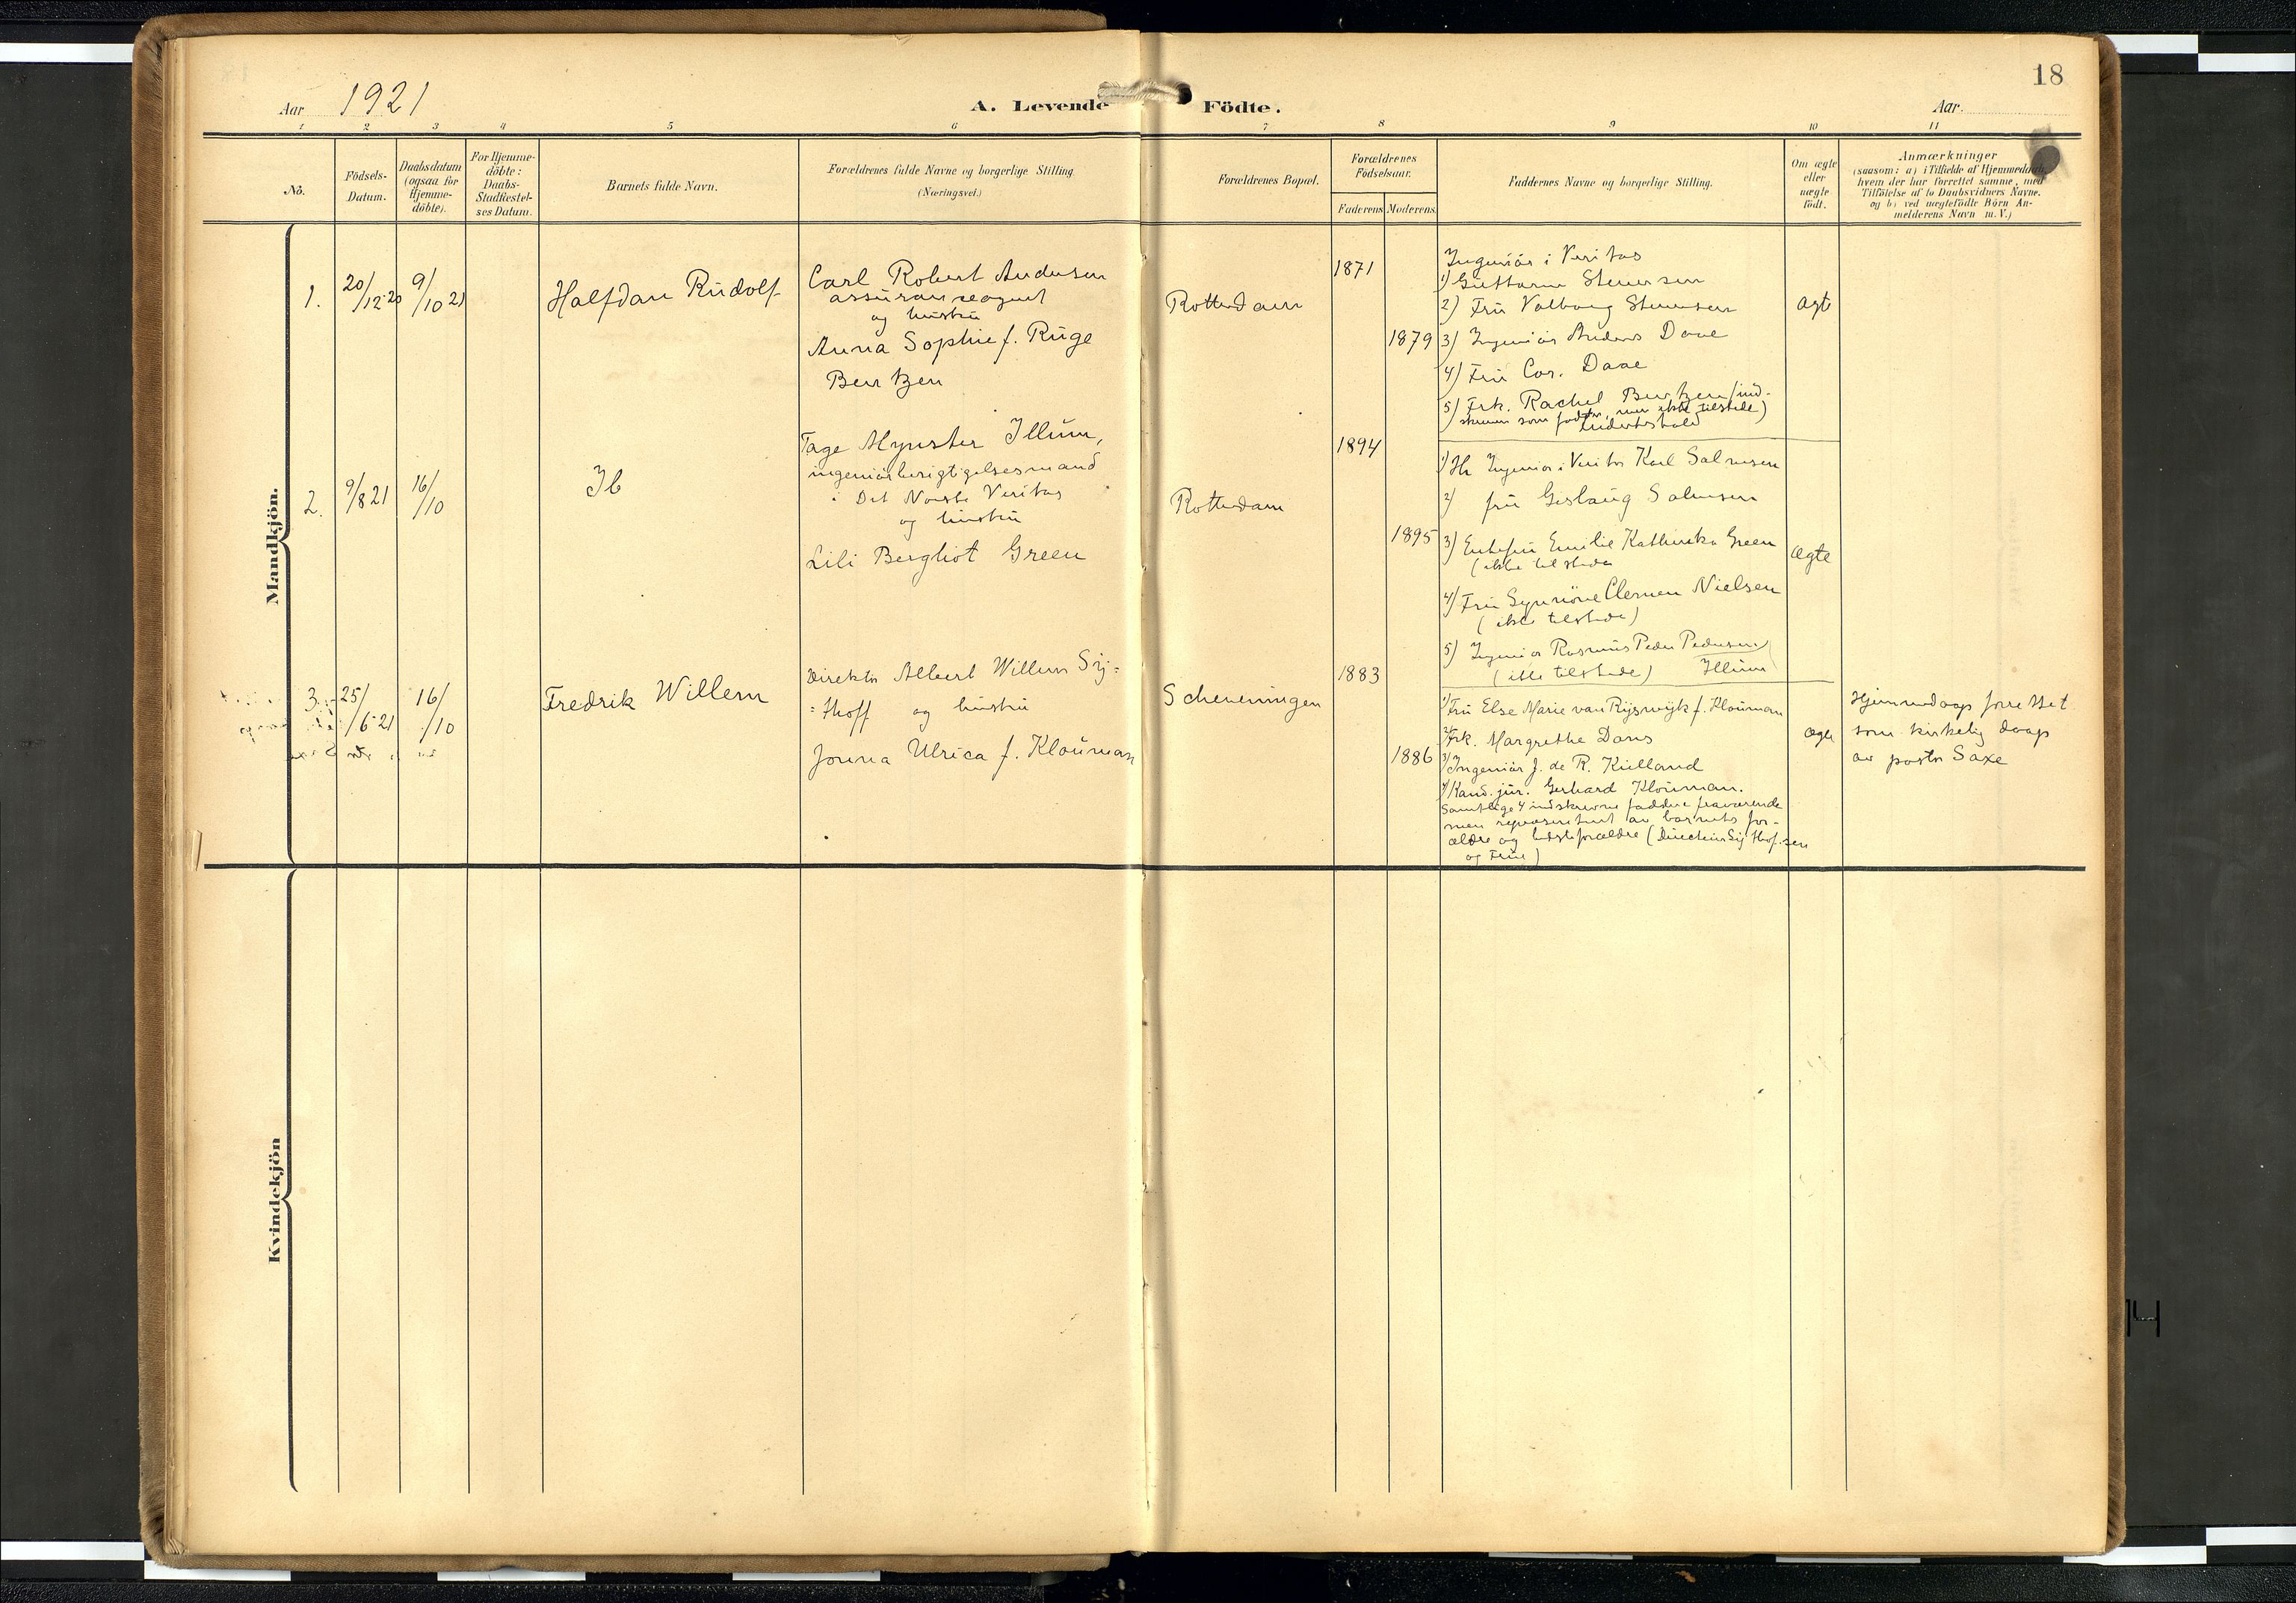 18
Aar 1921
A. Levende Födte.
Aar.
1 2 3 4 5 6 7 8 9 10 11
No.
Födsels-
Datum.
Daabsdatum
(ogsaa for
Hjemme-
döbte).
For Hjemme-
döbte:
Daabs-
Stadfæstel-
ses Datum.
Barnets fulde Navn.
Forældrenes fulde Navne og borgerlige Stilling.
(Næringsvei.)
Forældrenes Bopæl.
Forældrenes
Födselsaar.
Faderens Moderens
Faddernes Navne og borgerlige Stilling.
Om ægte
eller
uægte
födt.
Anmærkninger
(saasom: a) i Tilfælde af Hjemmedaab,
hvem der har forrettet samme, med
Tilföielse af to Daabsvidners Navne.
og b) ved uægtefödte Börn An-
melderens Navn m.V.)
Mandkjön.
1.
20/12 20
9/10 21
Halfdan Rudolf
Carl Robert Andersen
assuranseagent
og hustru
Anna Sophie f. Ruge
Berntzen
Rotterdam
1871
1879
Ingeniör i Veritas
1) Guttorm Steuersen
2) Fru Valborg Steuersen
3) Ingeniör Anders Daae
4) Fru Car. Daae
5) Frk. Rachel Berntzen (ind-
skreven som fadder, men ikke tilstede)
ægte
2.
9/8 21
16/10
Ib
Tage Mynster Illum,
ingeniör besigtigelsesmand
i Det Norske Veritas
og hustru
Lili Bergliot Green
Rotterdam
1894
1895
1) Hr Ingeniör i Veritas Karl Salvesen
2) fru Gislaug Salvesen
3) Enkefru Emilie Kathinka Green
(ikke tilstede
4) Fru Synnöve Clemen Nielsen
(ikke tilstede)
5) Ingeniör Rasmus Peder Pedersen
(ikke tilstede) Illum
ægte
3.
25/6 21
16/10
Fredrik Willem
Direktör Albert Willem Sij=
=thoff og hustru
Jonna Ulrica f. Klouman
Scheveningen
1883
1886
1) Fru Else Marie van Rijswijk f. Klouman
2) Frk. Margrethe Dons
3) Ingeniör J. de R. Kielland
4) Kand. jur. Gerhard Klouman.
Samtlige 4 indskrevne faddere fraværende
men representert av barnets for-
ældre og bedsteforældre (Direktör Sijthof-sen
og Frue)
ægte
Hjemmedaap forrettet
som kirkelig daap
av pastor Saxe
Kvindekjön